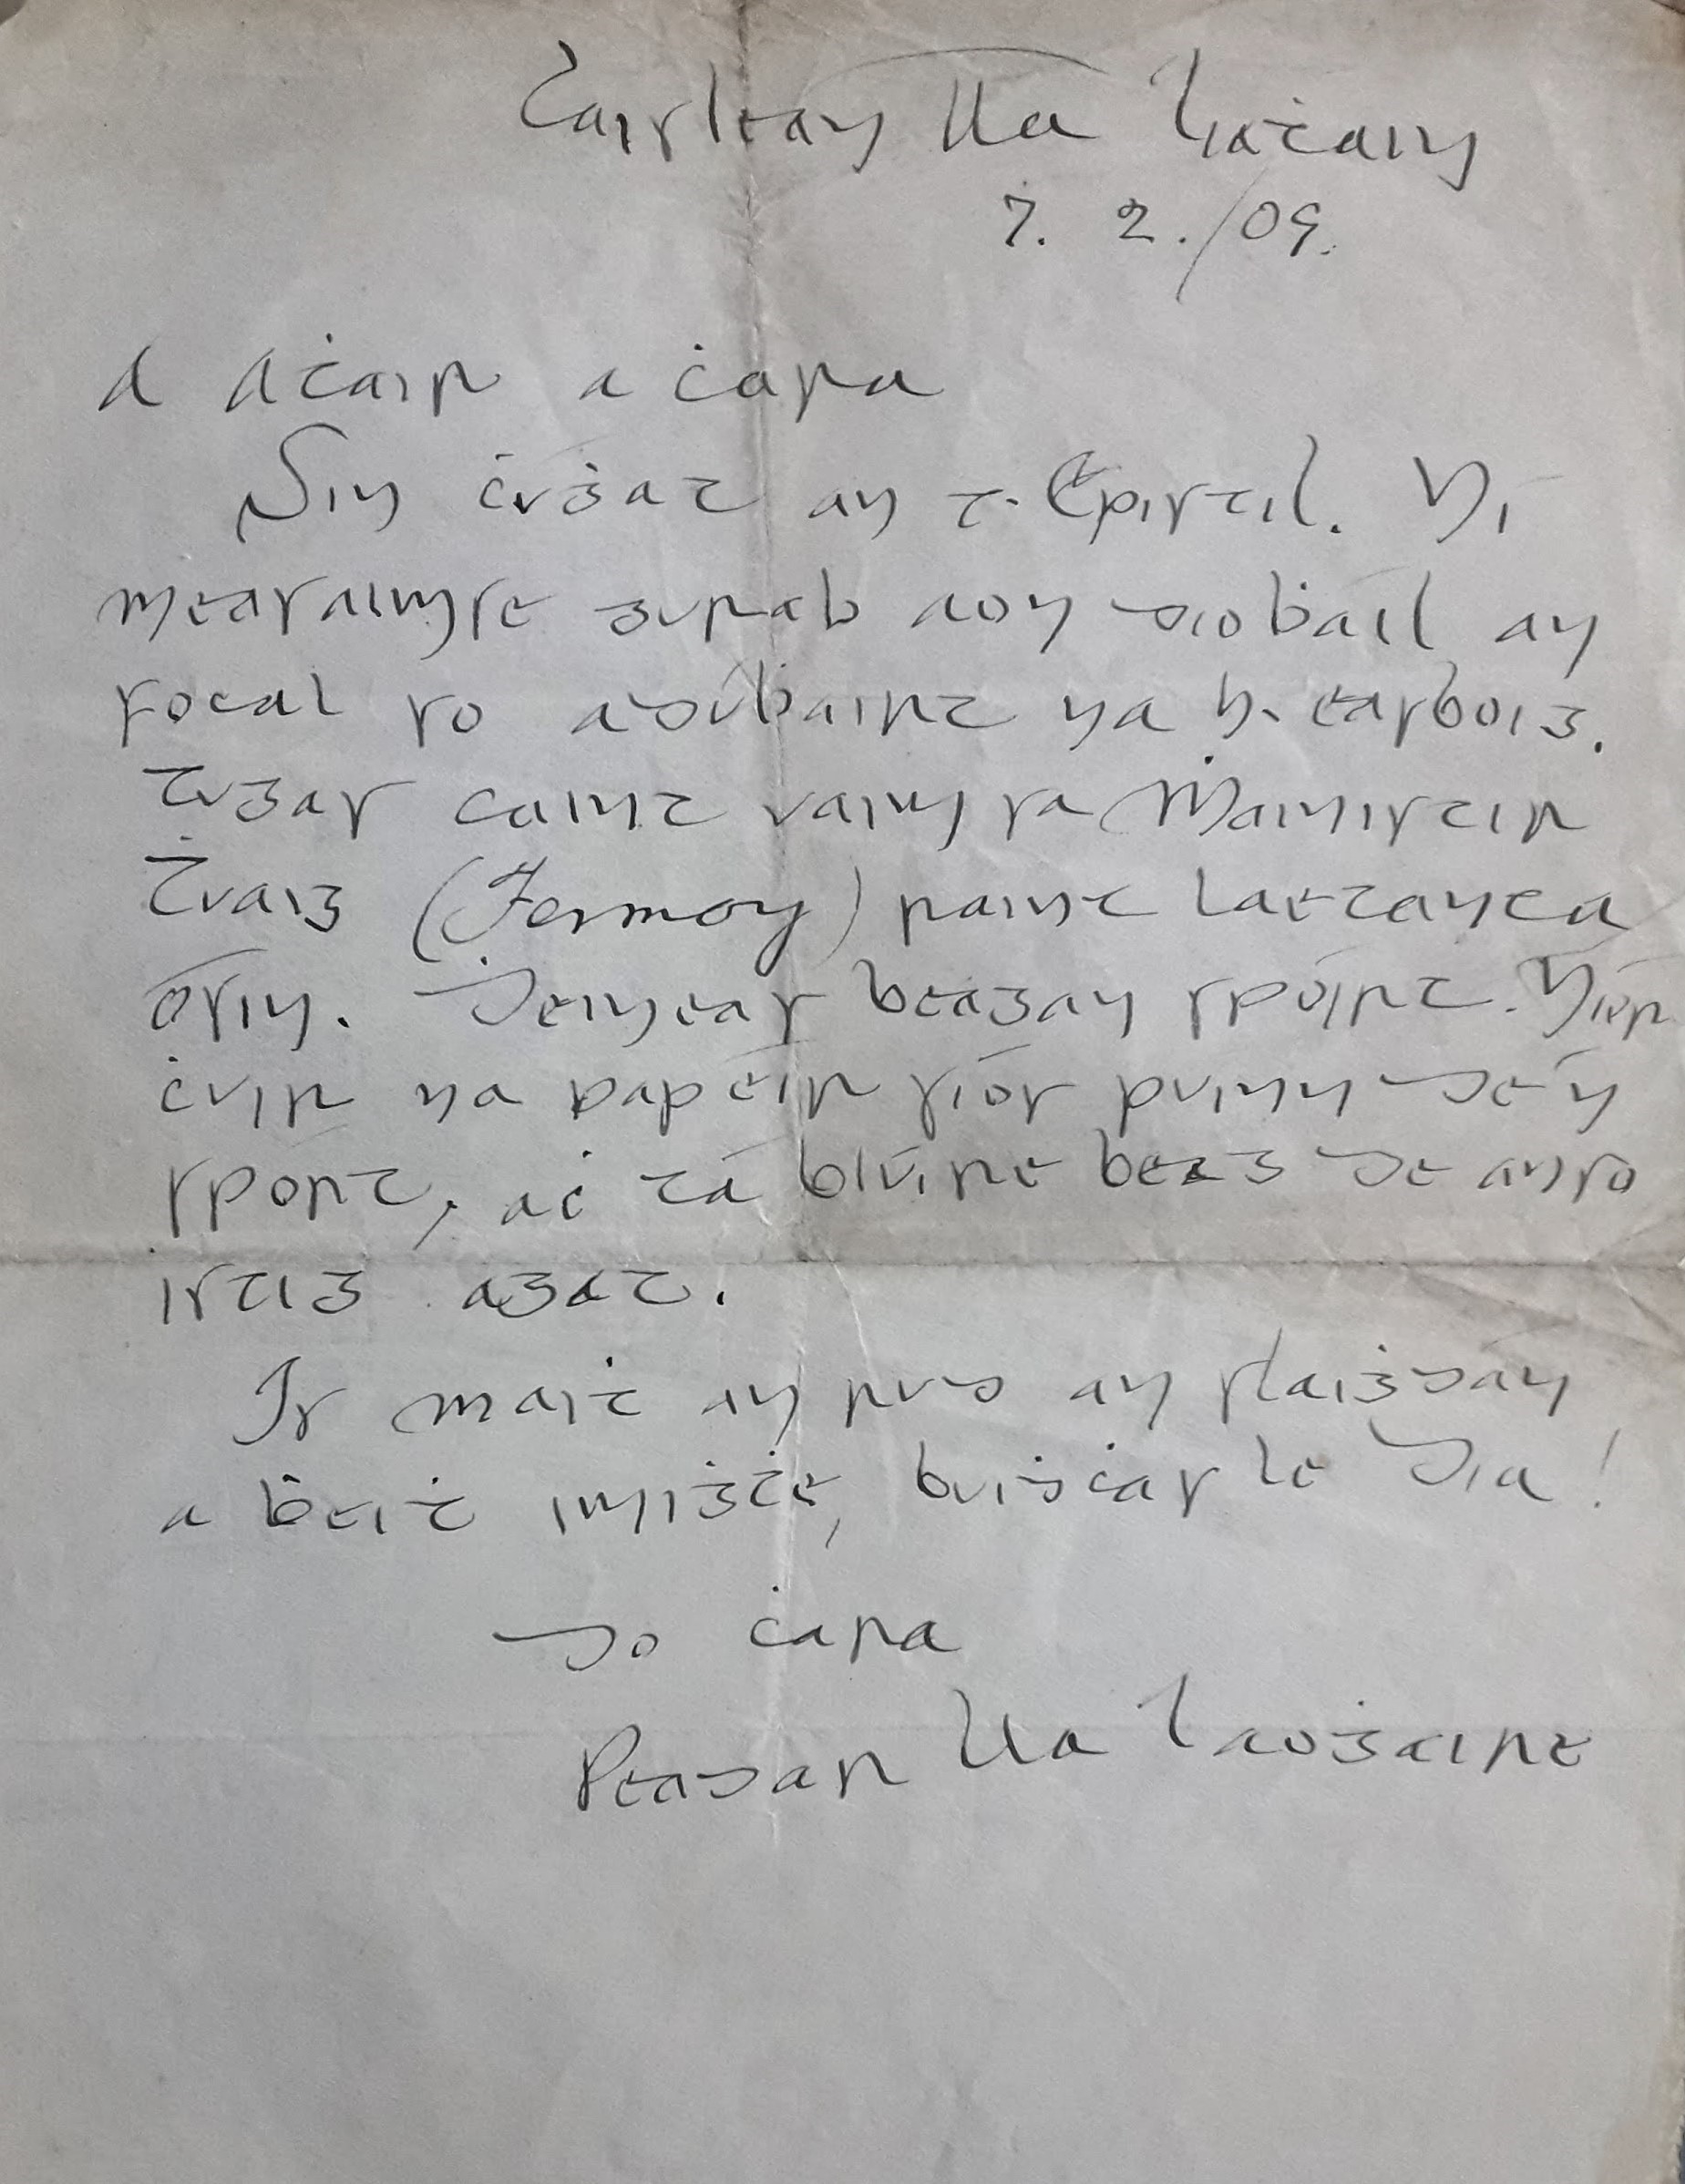 Caisleán Ua Liaṫáin
7. 2./09.
A Aṫair a ċara
Sin ċuġat an t-Epistil. Ní
measaimse gurab aon díoḃáil an
focal so aduḃairt na h-easboig.
Tugas caint uaim sa Ṁainistir
Ṫuaig (Fermoy) raint laetanta
ósin. Ḋeineas beagán spóirt. Níor
ċuir na papéir síos puinn dé'n
spórt, aċ tá blúire beag de annso
istig agat.
Is maiṫ an rud an slaiġdán
a ḃeiṫ imiġṫe, buiḋċas le Dia!
do ċara
Peadar Ua Laoġaire